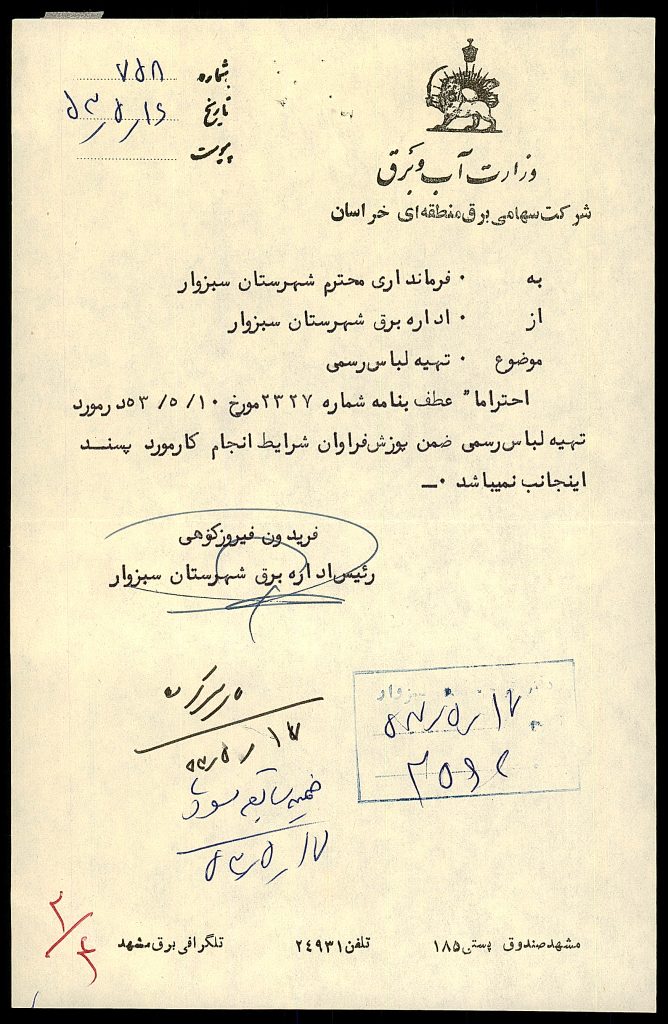 شماره ۷۵۸
تاریخ ۵۳٫۵٫۱۶
پیوست
وزارت آب و برق
شرکت سهامی برق منطقه‌ای خراسان
به • فرمانداری محترم شهرستان سبزوار
از • اداره برق شهرستان سبزوار
موضوع • تهیه لباس رسمی
احتراما" عطف بنامه شماره ۲۳۲۷ مورخ ۵۳/۵/۱۰ درمورد
تهیه لباس رسمی ضمن پوزش فراوان شرایط انجام کار مورد پسند
اینجانب نمیباشد ۰ــ
فریدون فیروزکوهی
رئیس اداره برق شهرستان سبزوار
۵۳٫۵٫۱۷
ضمیمه سابقه شود
۵۳٫۵٫۱۷
سبزوار
۵۳٫۵٫۱۷
۲/۴
مشهد صندوق پستی ۱۸۵ تلفن ۲۴۹۳۱ تلگرافی برق مشهد